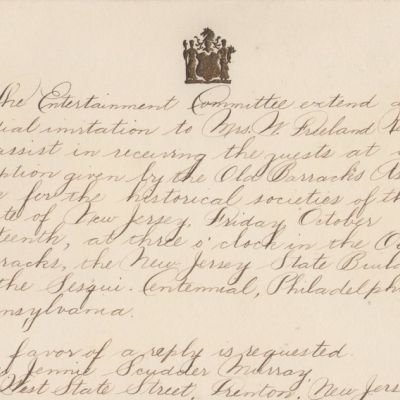 The Entertainment Committee extend a
cial invitation to Mrs. W. Freeland
assist in receiving the guests at
ption given by the Old Barracks As
for the historical societies of th
te of New Jersey, Friday October
teenth, at three o'clock in the O
rracks, the New Jersey State Build
the Sesqui-Centennial, Philadelph
nsylvania.
favor of a reply is requested.
Jennie Scudder Murray
West State Street, Trenton, New Jers